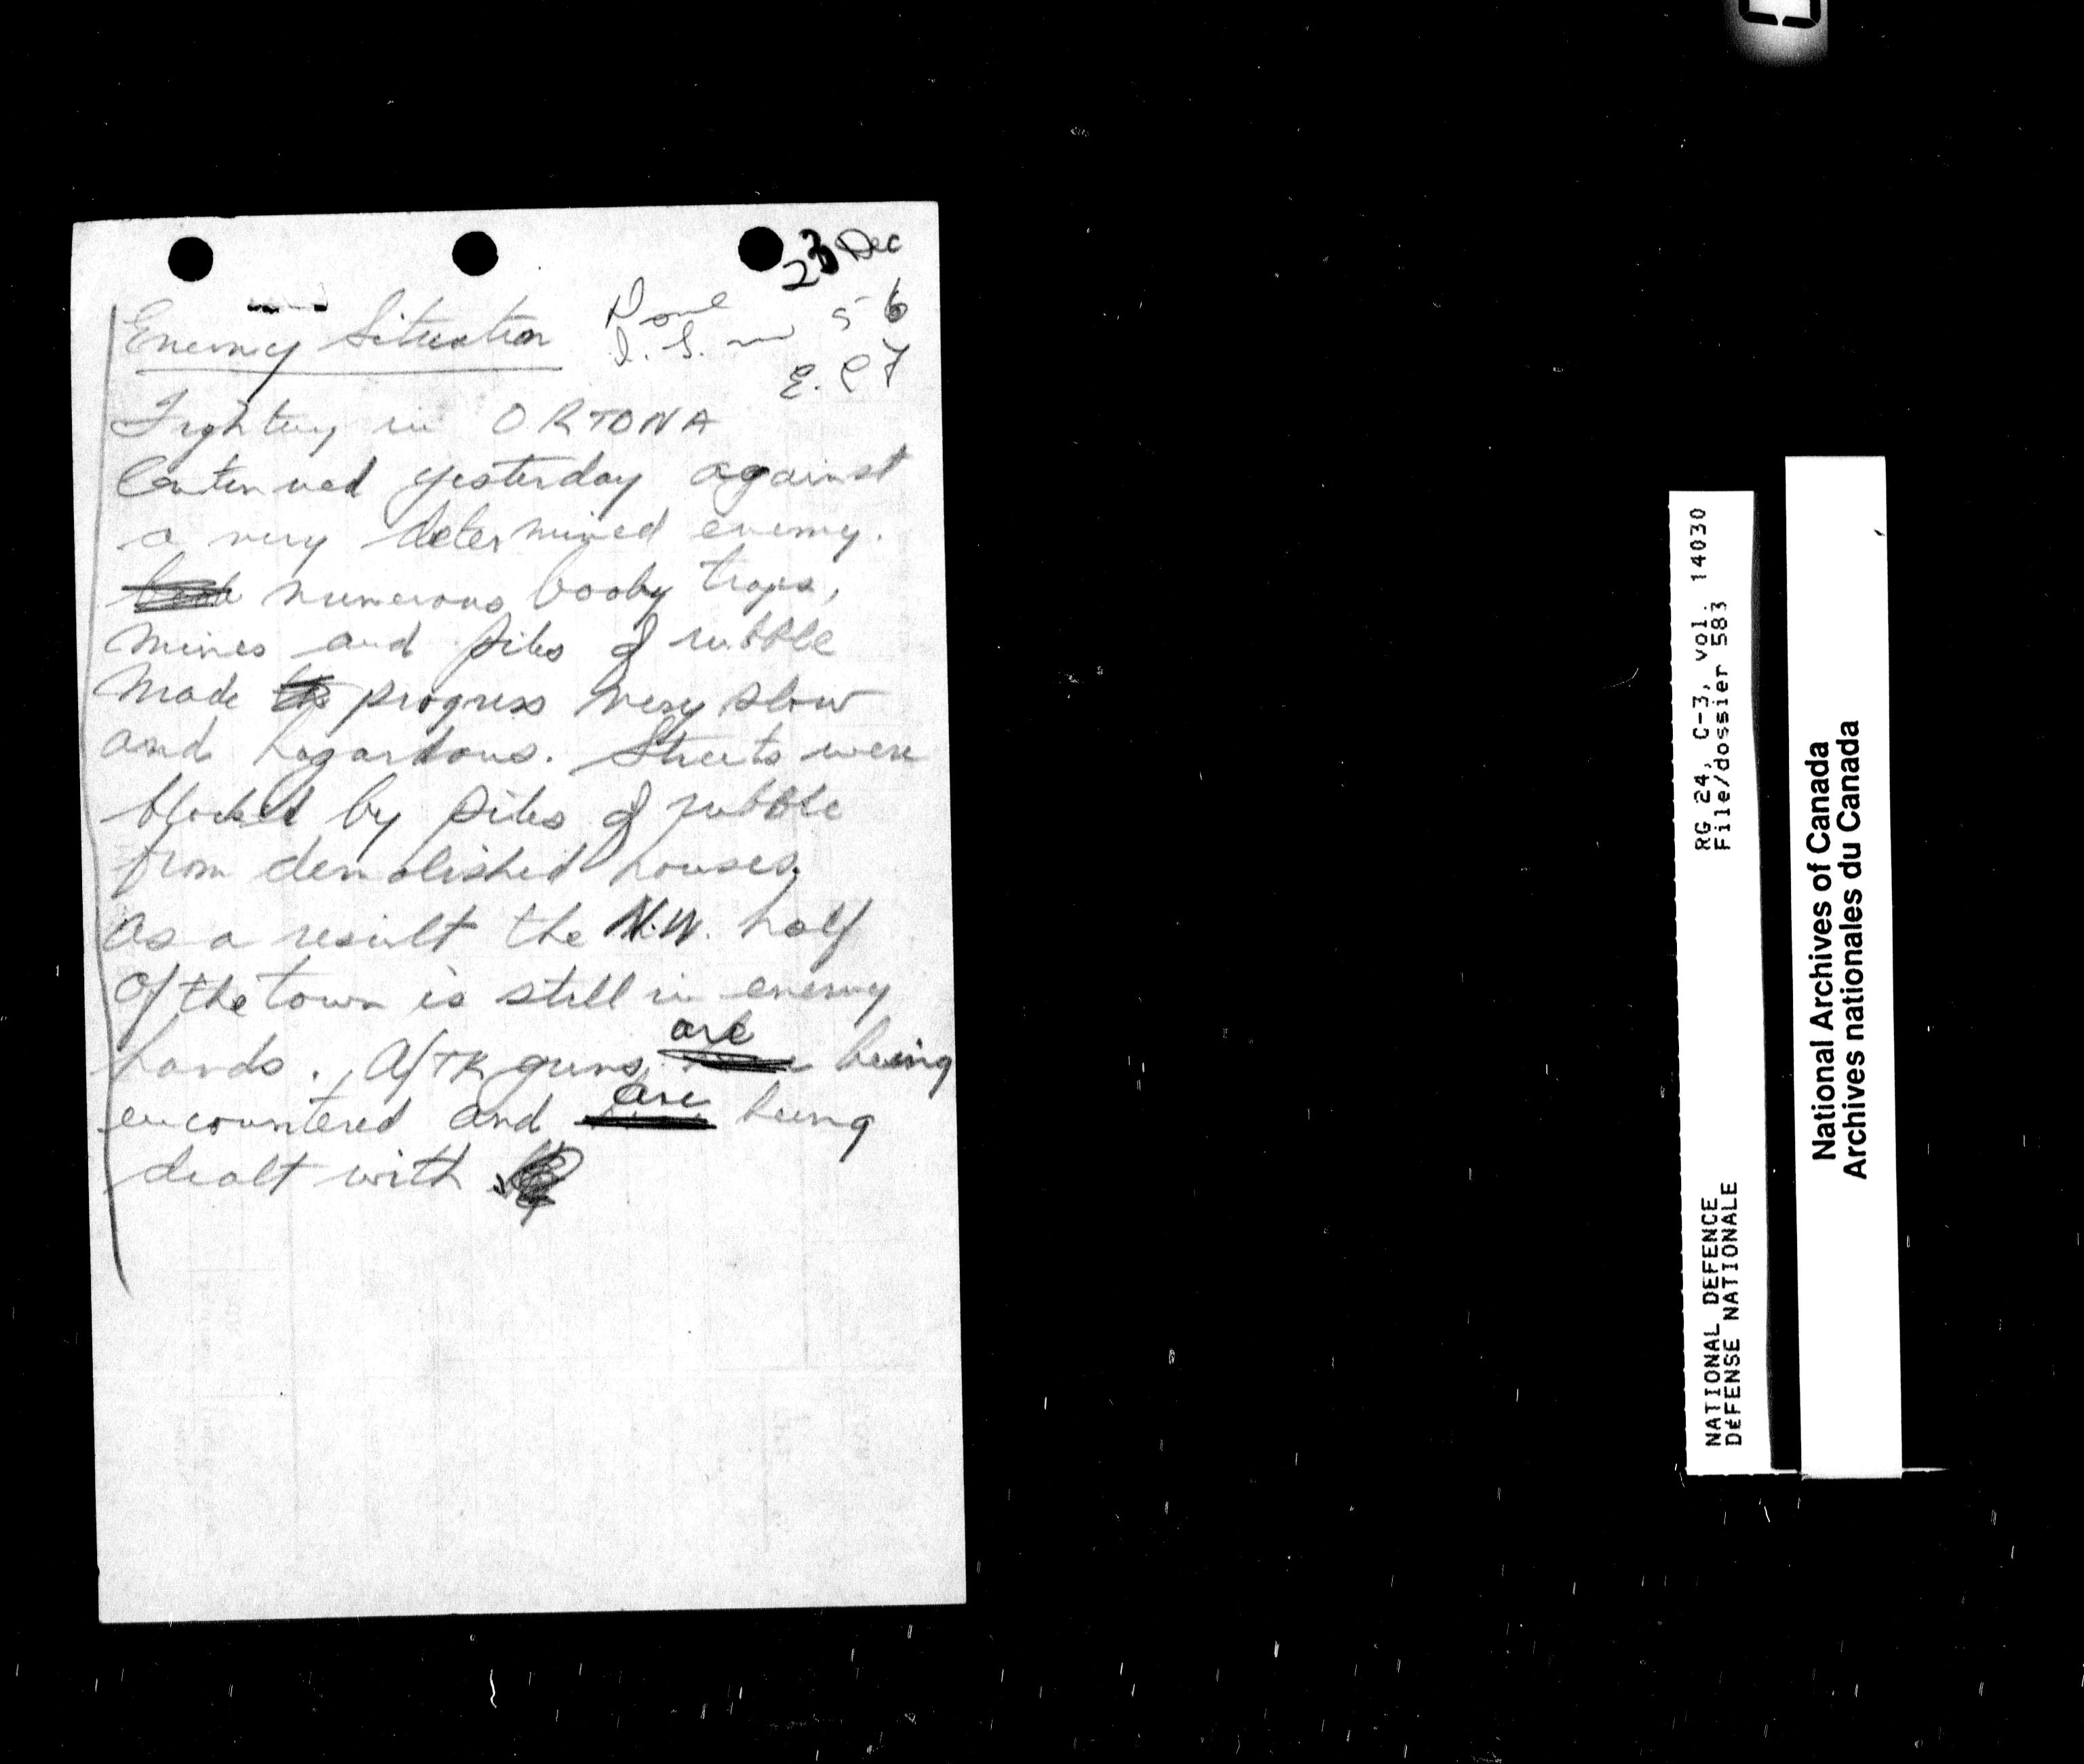 23 Dec
56
Enemy Situation
E. 
Fighting in ORTONA
Continued yesterday against
a very determined enemy.
numerous booby traps,
mines and piles of rubble
made progress very slow
and hazardous. Streets were
blocked by piles of rubble
from demolished houses.
As a result the N.W. half
of the town is still in enemy
hands. A/TK guns are being
encountered and are being
dealt with
RG 24, C-3, vol. 14030
File/dossier 583
NATIONAL DEFENCE
DÉFENSE NATIONALE
National Archives of Canada
Archives nationales du Canada